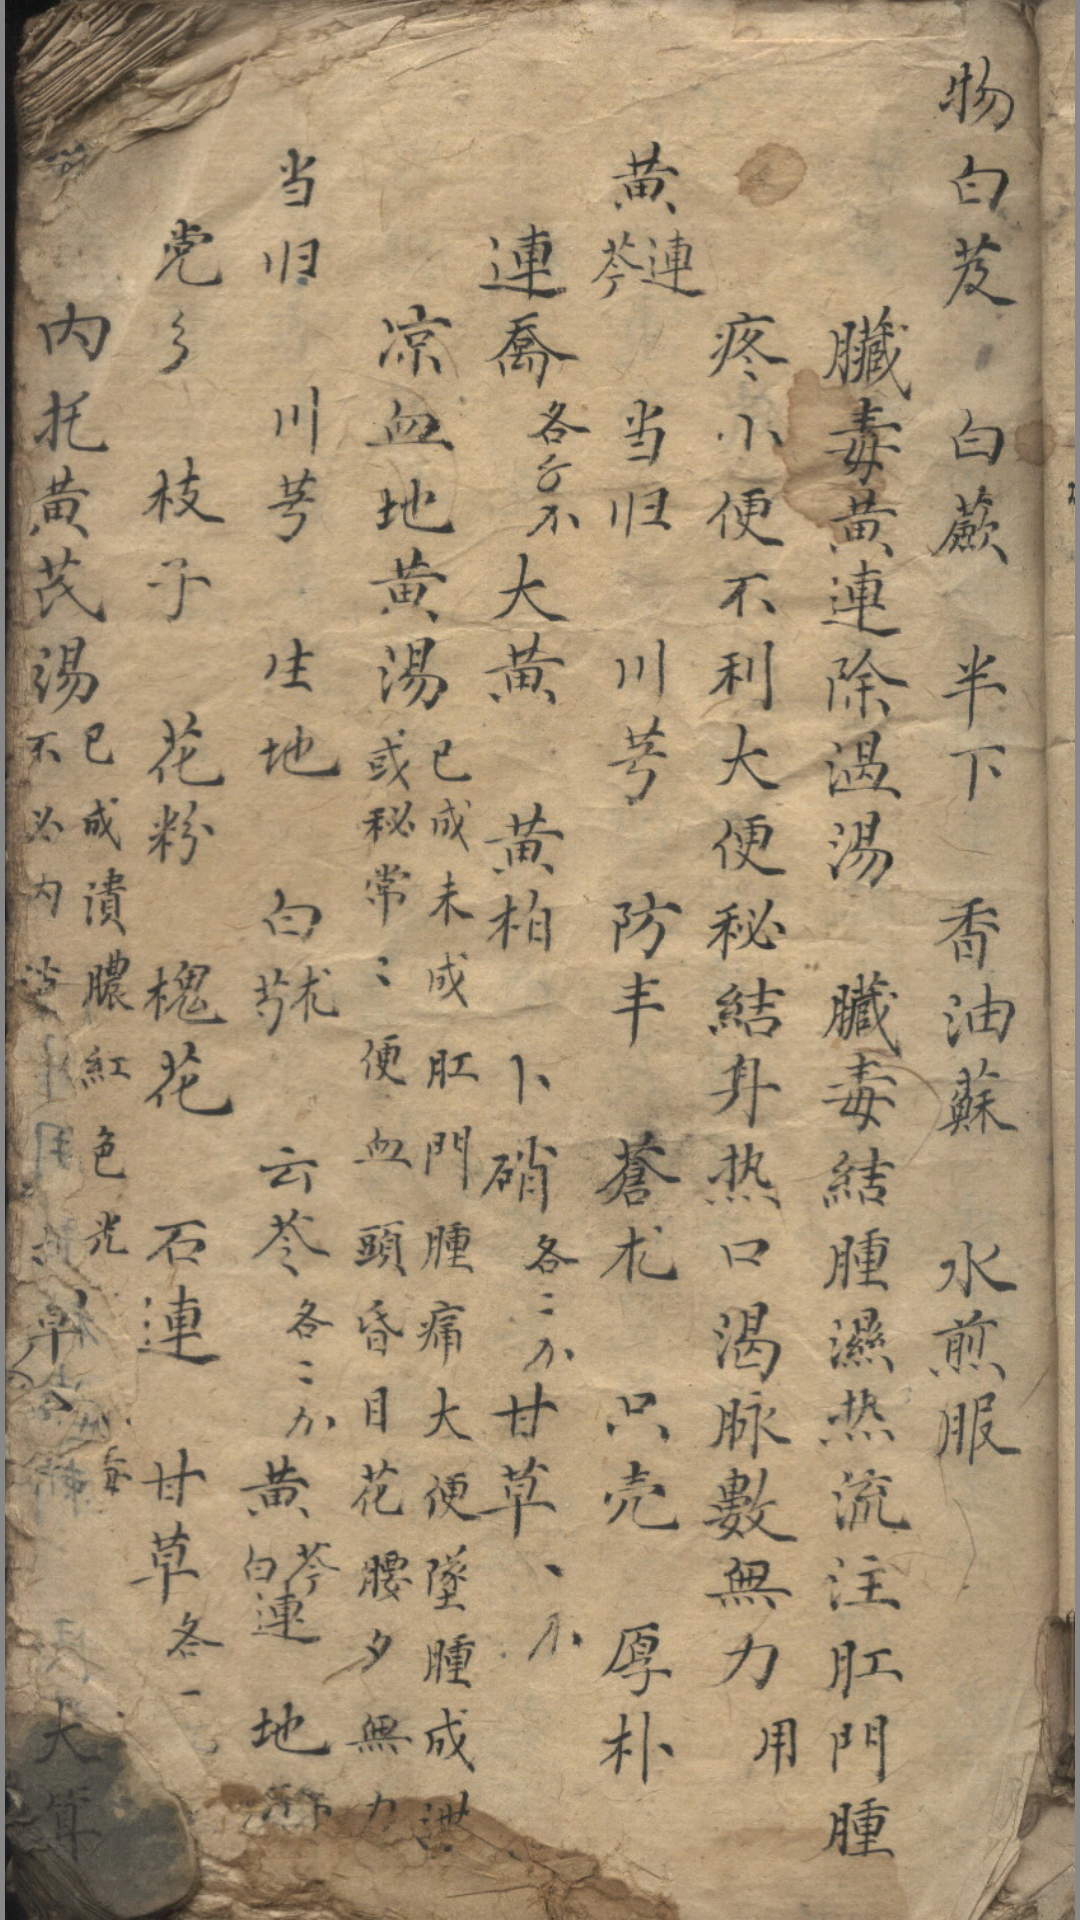 物白芨 白蕨 半下 香油蘇 水煎服
臟毒黃連除湿湯 臟毒結腫濕热流注肛門腫
疼小便不利大便秘結身热口渴脉數無力 用
黄連芩 当归 川芎 防丰 蒼朮 只壳 厚朴
連喬各 大黄 黄柏 卜硝各二 甘草
凉血地黄湯 已成未成肛門腫痛大便墜腫成
或秘常々便血頭昏目花腰夕無力
当归 川芎 生地 白朮芍 云苓各二 黄芩連 白 地
党 枝子 花粉 槐花 石連 甘草各一
内托黄芪湯 已成潰膿紅色光
不必内 用 大